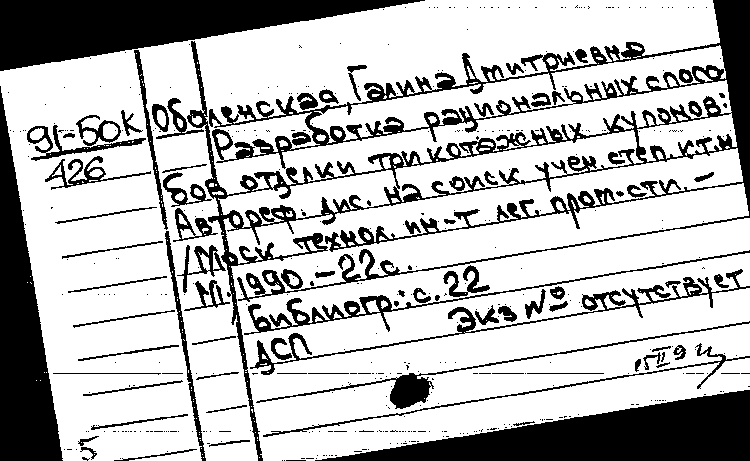 91-50К
426
Оболенская, Галина Дмитриевна
Разработка рациональных спосо
бов отделки трикотажных купонов:
Автореф. дис. на соиск. учен. степ. к.т.н
/Моск. технол. ин-т лег. пром-сти. –
М., 1990. – 22 с.
Библиогр.: с. 22
Экз № отсутствует
ДСП
5